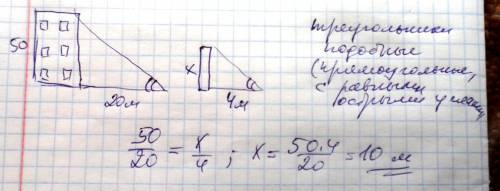 50
20 м
x
4 м
треугольники
подобные
(прямоугольные,
с равными
острыми углами
50/20 = x/4 ; x = 50·4/20 = 10 м